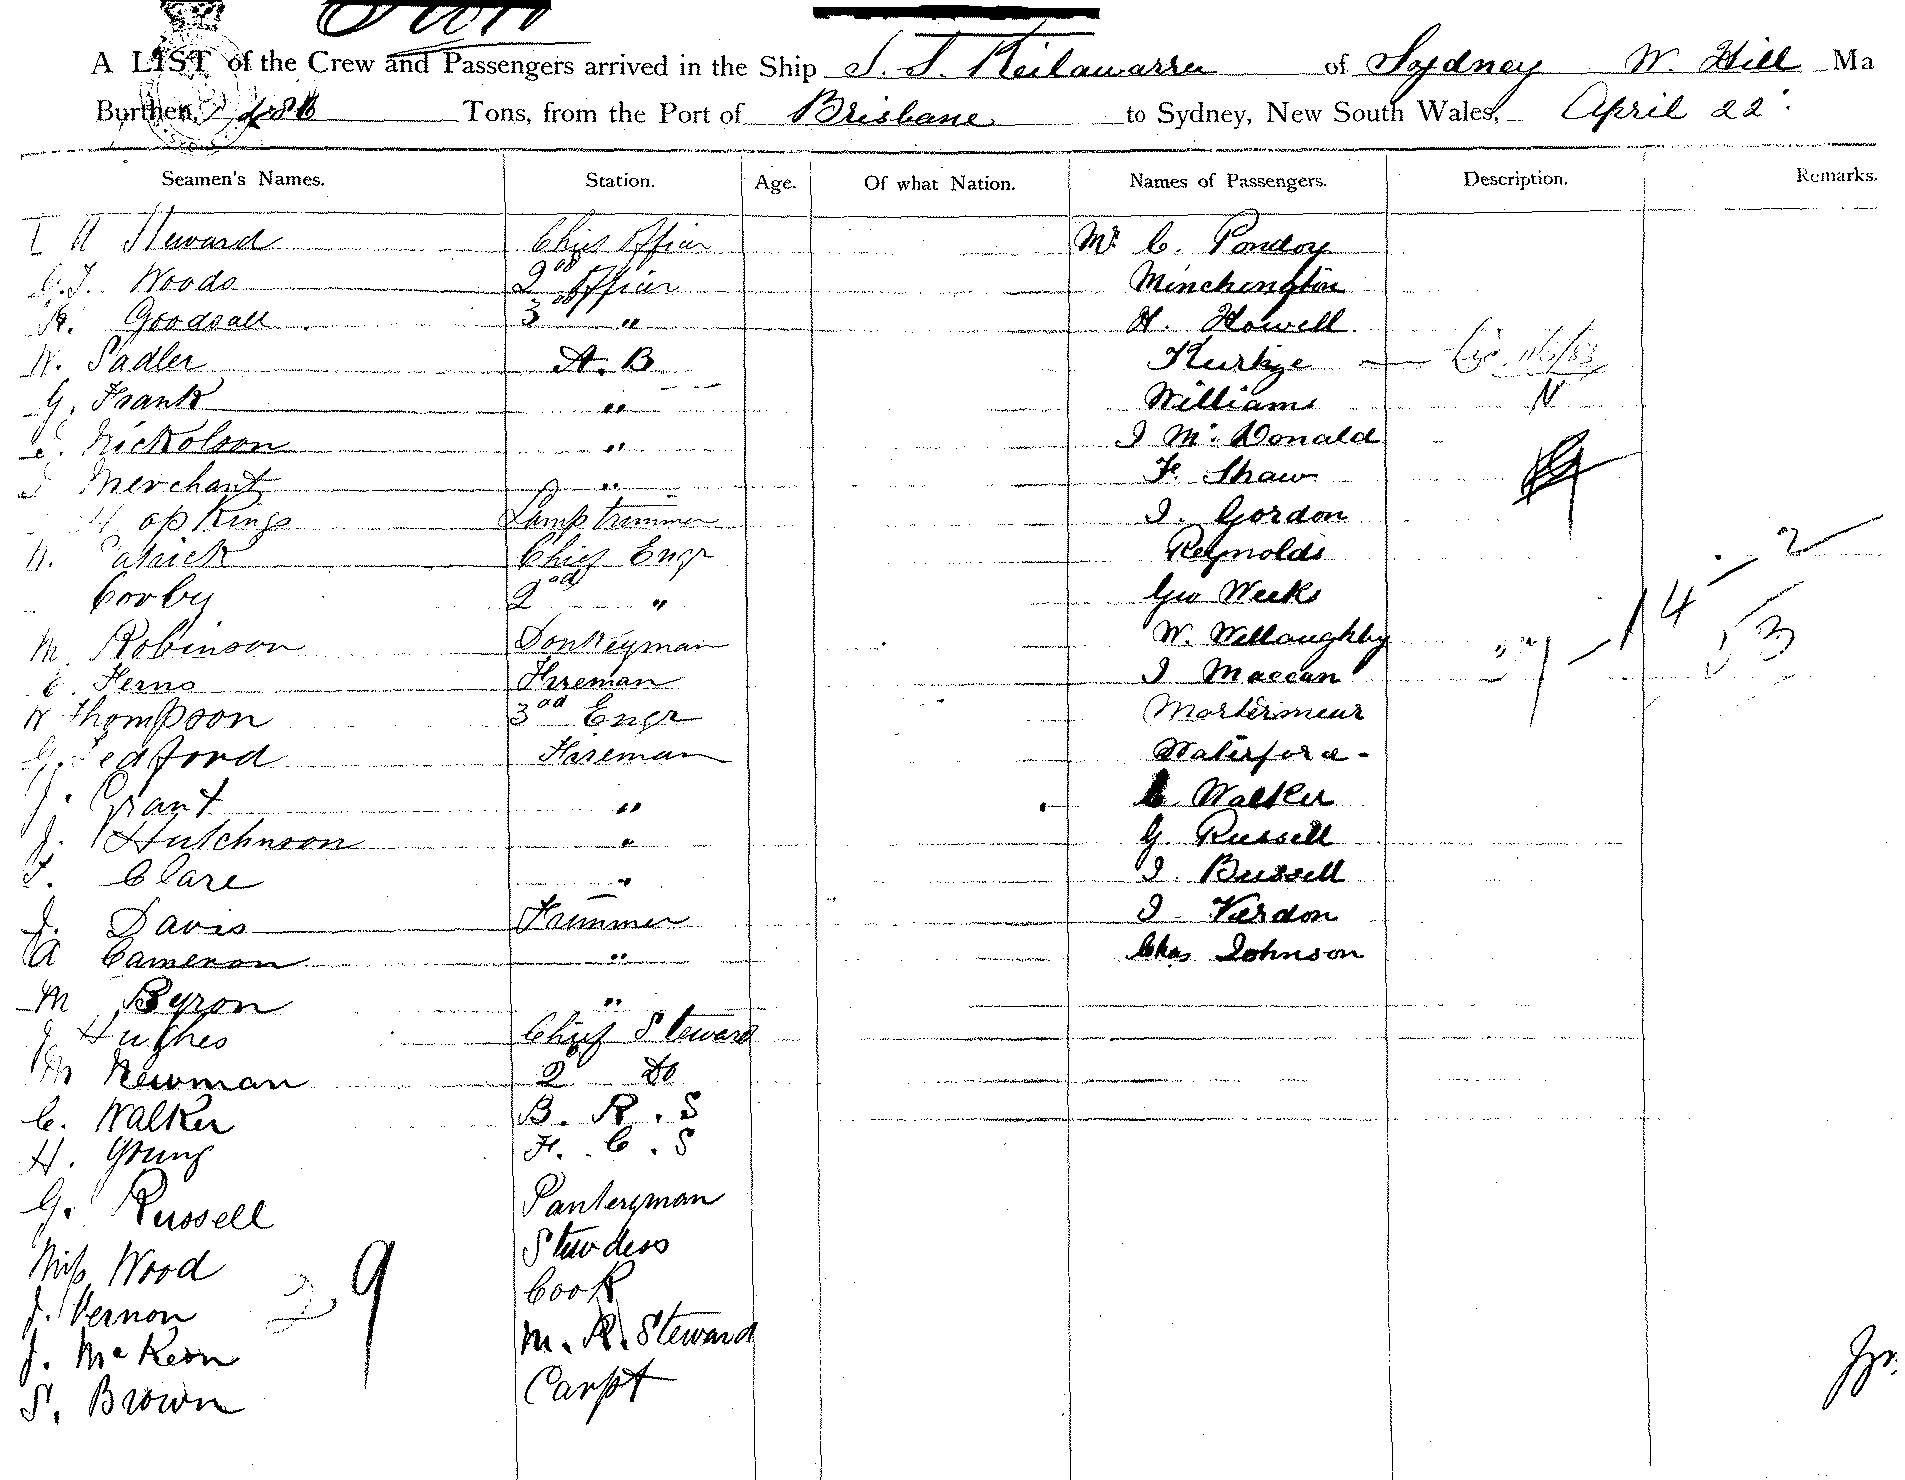 A LIST of the Crew and Passengers arrived in the Ship S. S. Keilawarra of Sydney W. Hill Ma
Burthen, Tons, from the Port of Brisbane to Sydney, New South Wales, April 22
Seamen's Names. Station. Age. Of what Nation. Names of Passengers. Description. Remarks.
Steward Chief Officer Mr C. Pondoy
Woods 2nd Officer Minchington
Goodsall 3rd " H. Howell
W. Sadler A. B Kurtze
G. Frank " Williams N
Nickolson " I McDonald
Merchant " F. Shaw
Hopkings Lamp trimmer I. Gordon
Patrick Chief Engr Reynolds 2
Corby 2nd " Geo Weeks 14
M. Robinson Donkeyman W. Willaughby 53
E. Ferns Fireman I Maccan
W Thompson 3rd Engr Mortermeur
G. Tedford Fireman Waterford
J. Grant " C Walker
J. Hutchnson " G. Russell
Clare " I Bussell
J. Davis Trimmer I Verdon
A Cameron " Chas Johnson
M Byron "
J Hughes Chief Steward
M Newman 2 Do
C. Walker B. R. S
H. Young F. C. S
G. Russell Panteryman
Miss Wood Stewdess
J. Vernon Cook
29
J. McKeon M. R. Steward
S. Brown Carpt